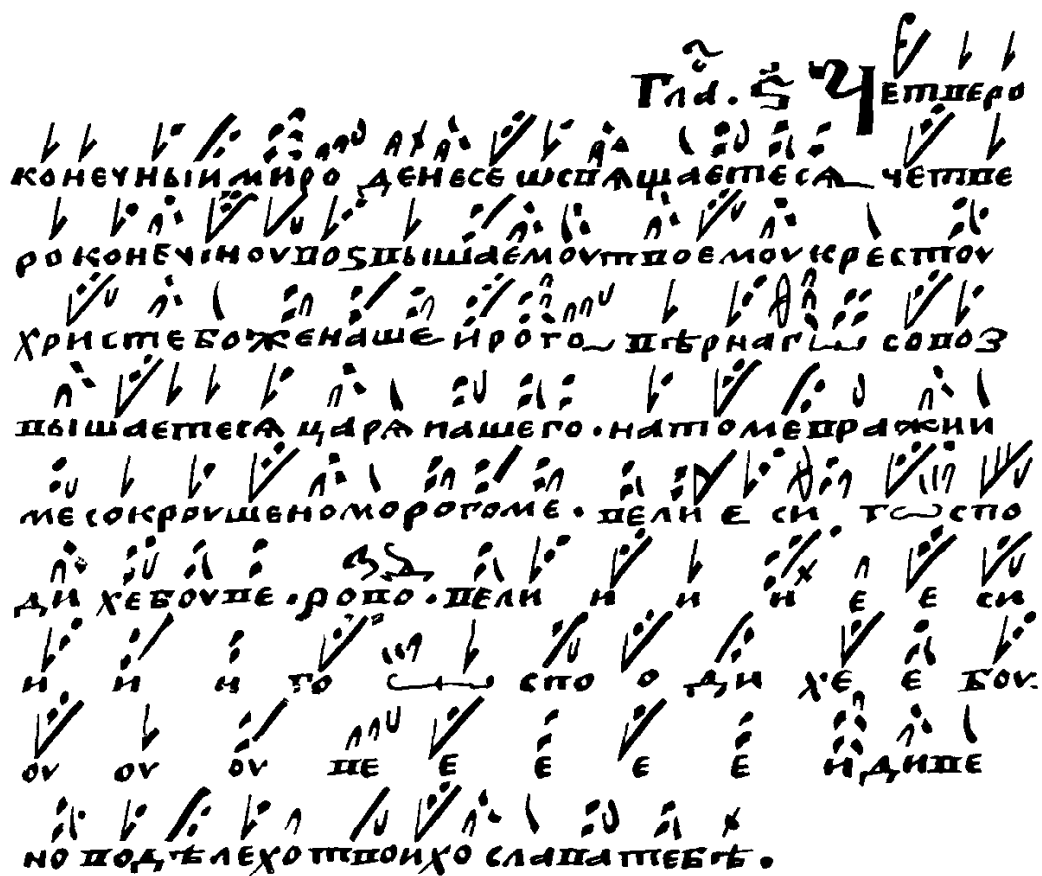 Гла. ѕ҃ Четверо
конечныи миро денесе ѡспѧщаетесѧ четве
роконечіноуꙋ воꙁвышаемоу твоемоу крестоу
христе боже наше и рого вѣрнагѡ сопоз
вышаетесѧ царѧ нашего. на томе вражии
ме сокроушеномо рогоме. вели е си господи
ди хе боуве. ропо. вели и и и е е си
и и и го спо о ди хе е боу.
оу оу оу ве е е е е и диве
но во дѣлехо твоихо слава тебѣ.